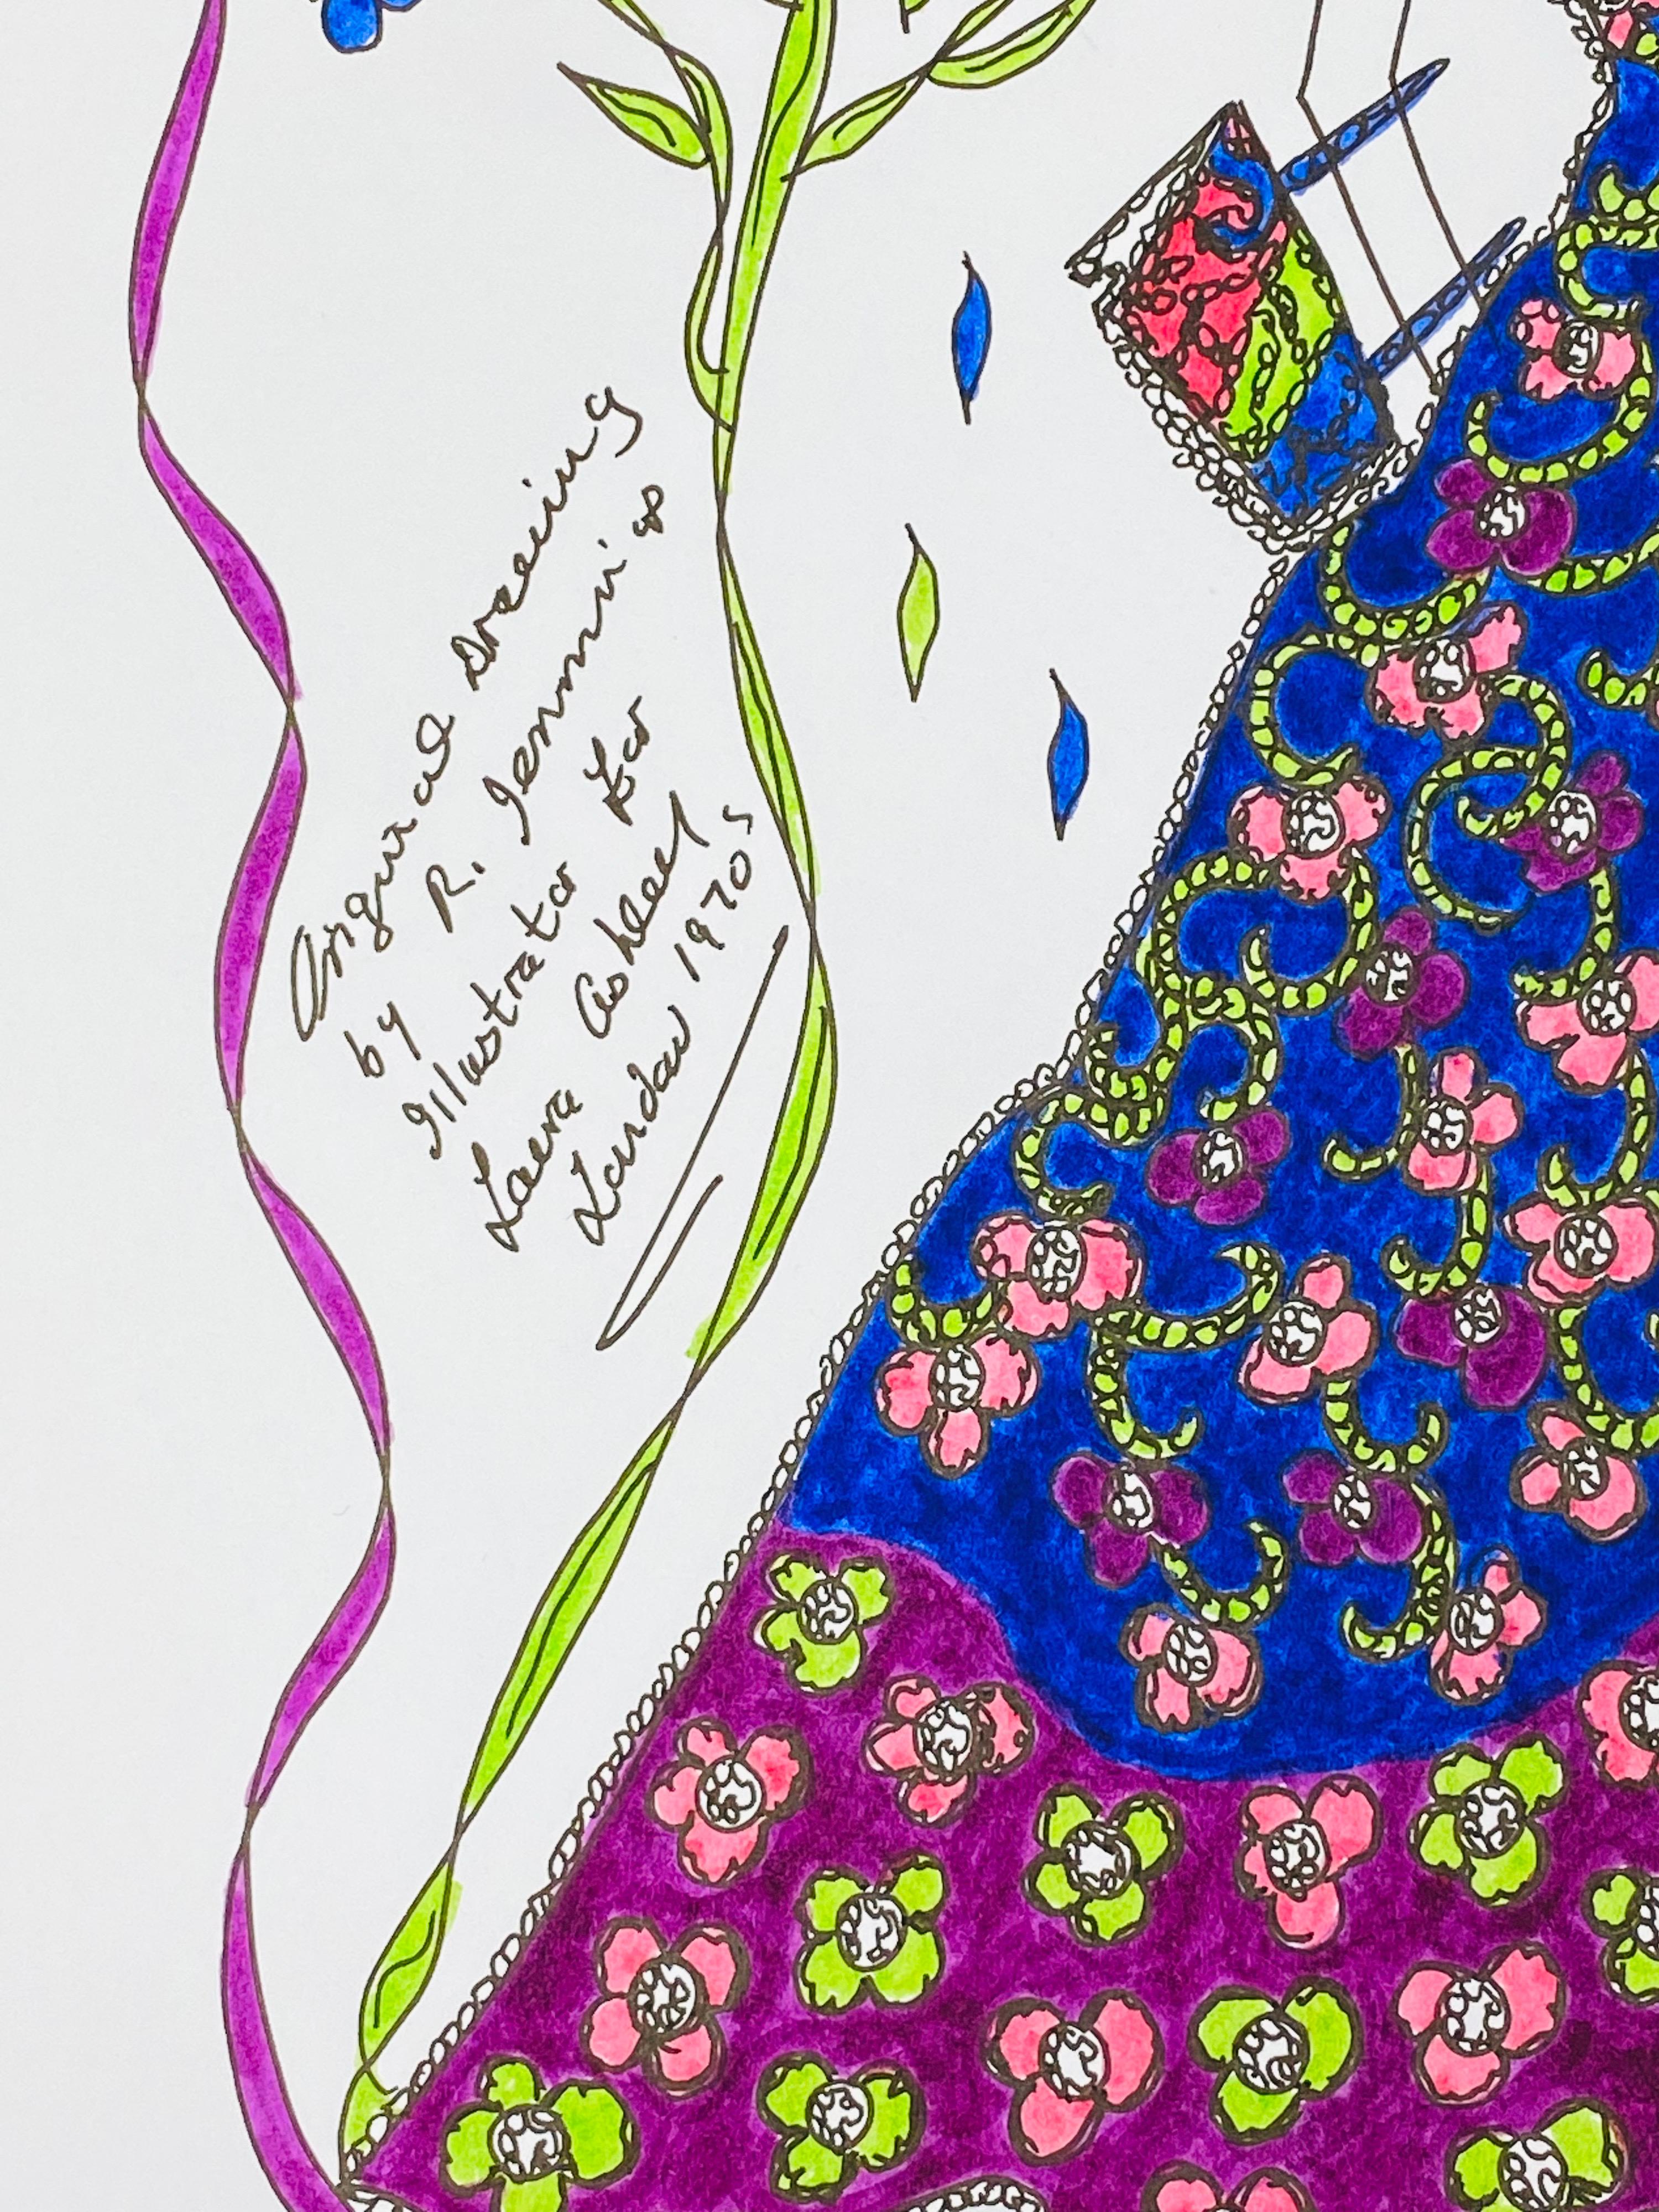 Original Drawing
by R.
Illustrator for
Laura Ashley
London 1970s